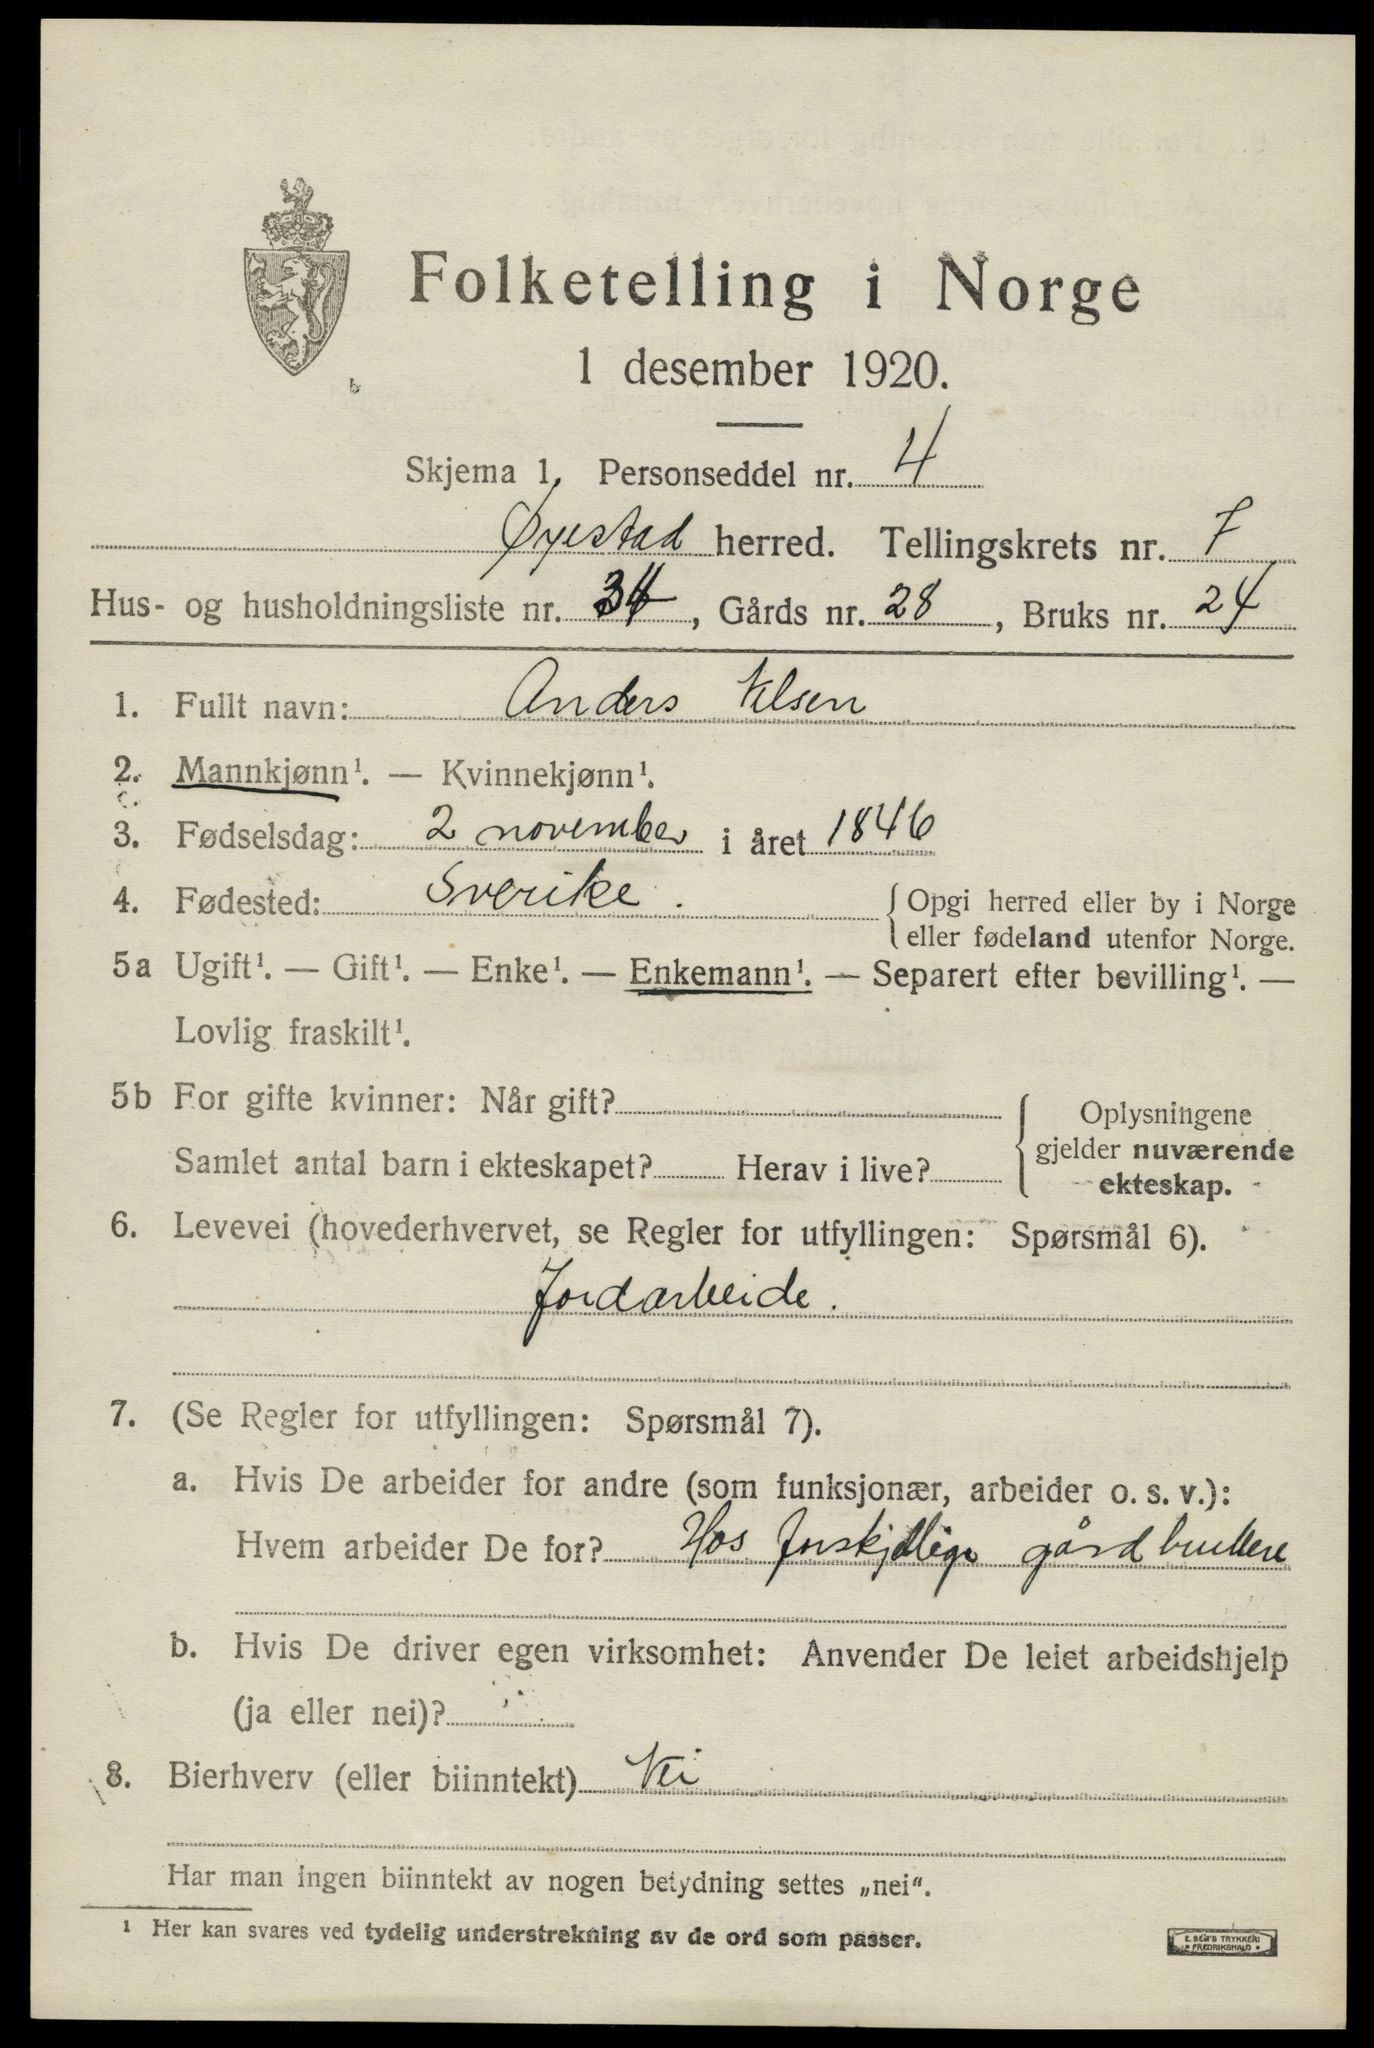 Folketelling i Norge
1 desember 1920.
Skjema 1. Personseddel nr. 4
Øyestad herred. Tellingskrets nr. 7
Hus- og husholdningsliste nr. 34, Gårds nr. 28, Bruks nr. 24
1. Fullt navn: Anders
2. Mannkjønn¹. — Kvinnekjønn¹.
3. Fødselsdag: 2 november i året 1846
4. Fødested: Sverike. { Opgi herred eller by i Norge
eller fødeland utenfor Norge.
5a Ugift¹. — Gift¹. — Enke¹. — Enkemann¹. — Separert efter bevilling¹. —
Lovlig fraskilt¹.
5b For gifte kvinner: Når gift? { Oplysningene
gjelder nuværende
ekteskap.
Samlet antal barn i ekteskapet? Herav i live?
6. Levevei (hovederhvervet, se Regler for utfyllingen: Spørsmål 6).
Jordarbeide.
7. (Se Regler for utfyllingen: Spørsmål 7).
a. Hvis De arbeider for andre (som funksjonær, arbeider o. s. v.):
Hvem arbeider De for? Hos forskjellige gårdbrukere
b. Hvis De driver egen virksomhet: Anvender De leiet arbeidshjelp
(ja eller nei)?
8. Bierhverv (eller biinntekt) Nei
Har man ingen biinntekt av nogen betydning settes „nei“.
¹ Her kan svares ved tydelig understrekning av de ord som passer.
E. SEM'S TRYKKERI
FREDRIKSHALD